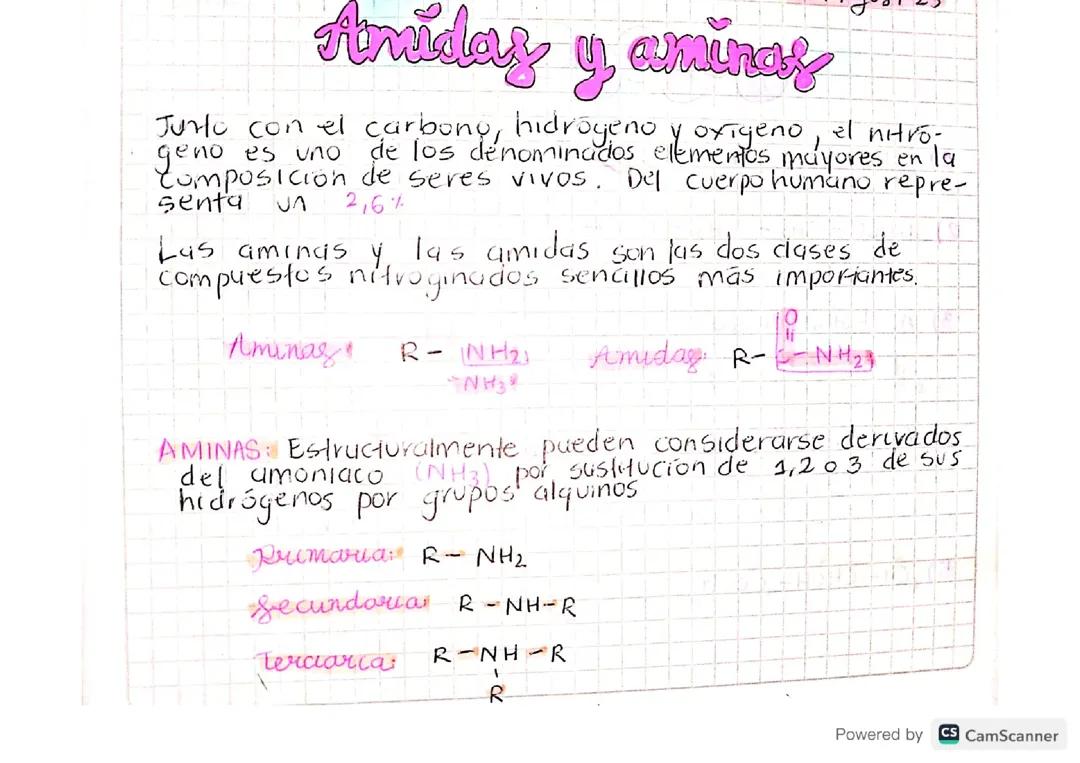 Amidas y aminas
Junto con el carbono, hidrógeno y oxígeno, el nitró-
geno es uno de los denominados elementos mayores en la
composición de seres vivos. Del cuerpo humano repre-
senta un 2,6%
Las aminas y las amidas son las dos clases de
compuestos nitroginados sencillos más importantes.
O
"
Aminas: R - NH2 Amidas: R- C - NH2
NH3
AMINAS: Estructuralmente pueden considerarse derivados
del amoniaco (NH3) por sustitución de 1,2 o 3 de sus
hidrógenos por grupos alquinos
Primaria: R - NH2
Secundaria: R - NH - R
Terciaria: R - NH - R
R
Powered by CS CamScanner